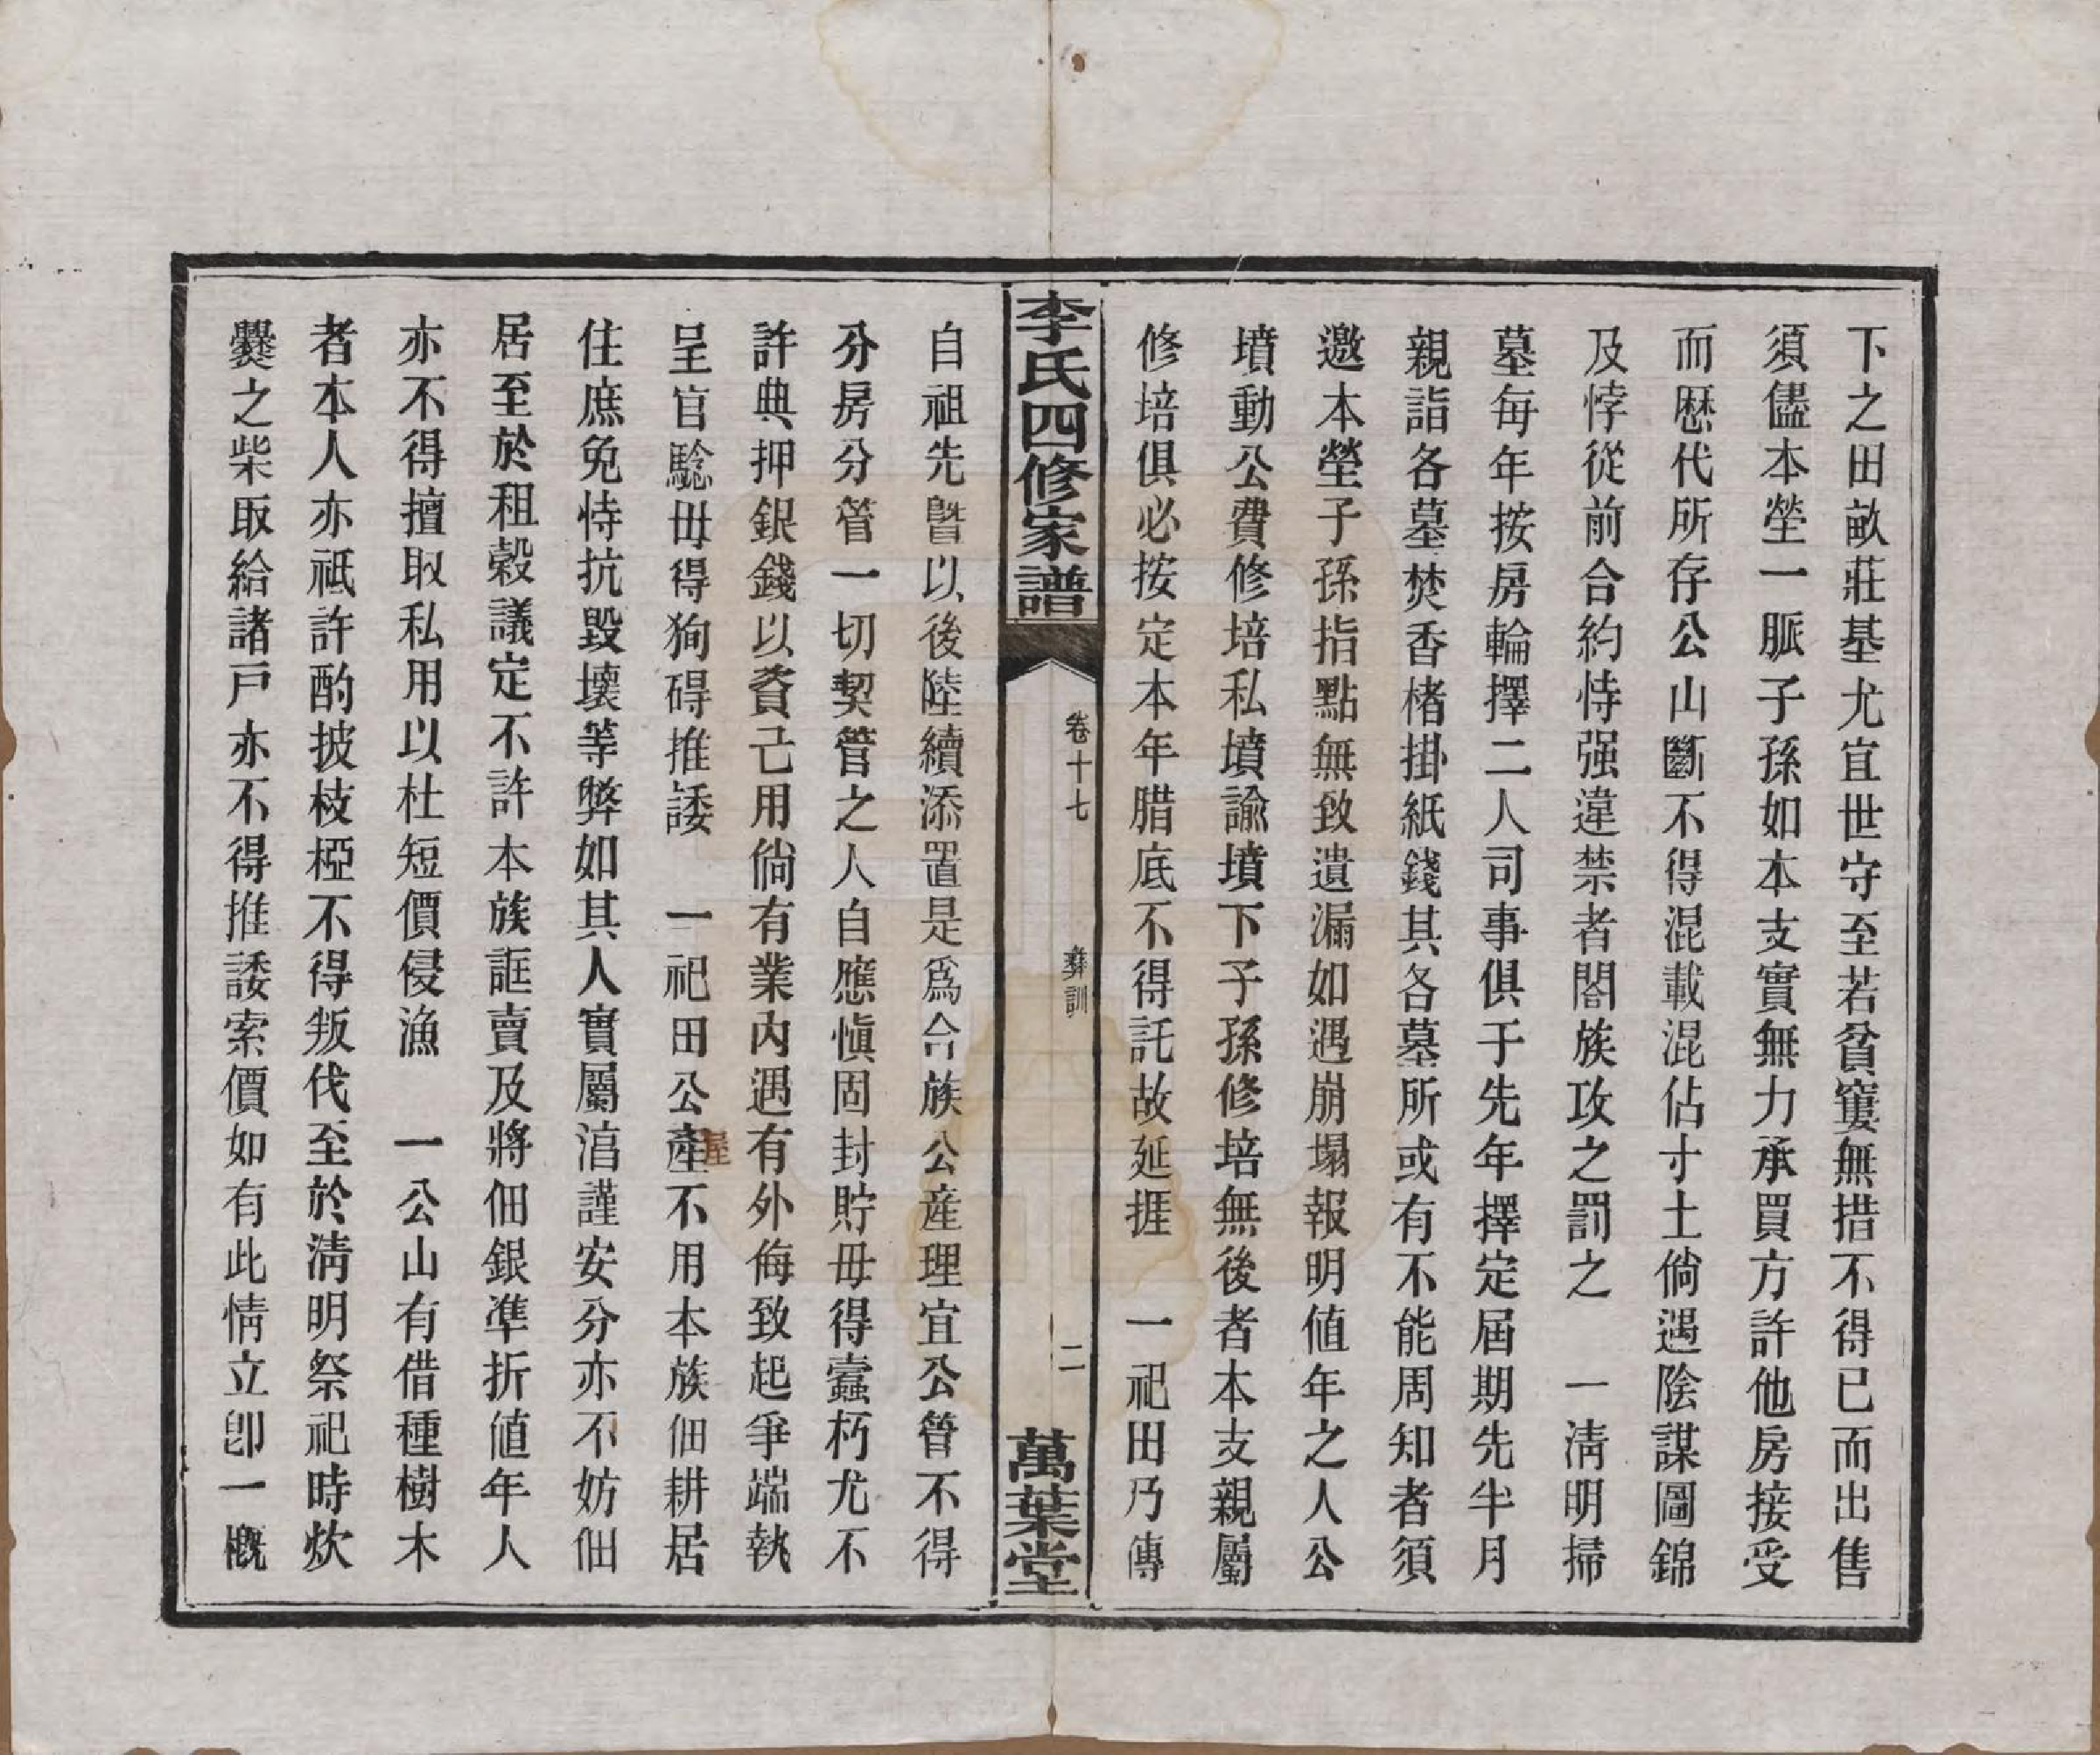 下之田畝莊基尤宜世守至若貧窶無措不得已而出售
須儘本塋一脈子孫如本支實無力承買方許他房接受
而歷代所存公山斷不得混載混佔寸土倘遇陰謀圖錦
及悖從前合約恃强違禁者閤族攻之罰之　一清明掃
墓每年按房輪擇二人司事俱于先年擇定屆期先半月
親詣各墓焚香楮掛紙錢其各墓所或有不能周知者須
邀本塋子孫指點無致遺漏如遇崩塌報明値年之人公
墳動公費修培私墳諭墳下子孫修培無後者本支親屬
修培俱必按定本年腊底不得託故延捱　一祀田乃傳
李氏四修家譜
卷十七
彝訓
二
萬葉堂
自祖先曁以後陸續添置是爲合族公産理宜公管不得
分房分管一切契管之人自應愼固封貯毋得蠹朽尤不
許典押銀錢以資己用倘有業內遇有外侮致起爭端執
呈官騐毋得狥碍推諉　一祀田公產不用本族佃耕居
屋
住庶免恃抗毀壞等弊如其人實屬湻謹安分亦不妨佃
居至於租穀議定不許本族誆賣及將佃銀準折値年人
亦不得擅取私用以杜短價侵漁　一公山有借種樹木
者本人亦祗許酌披枝椏不得叛伐至於清明祭祀時炊
爨之柴取給諸戸亦不得推諉索價如有此情立卽一概